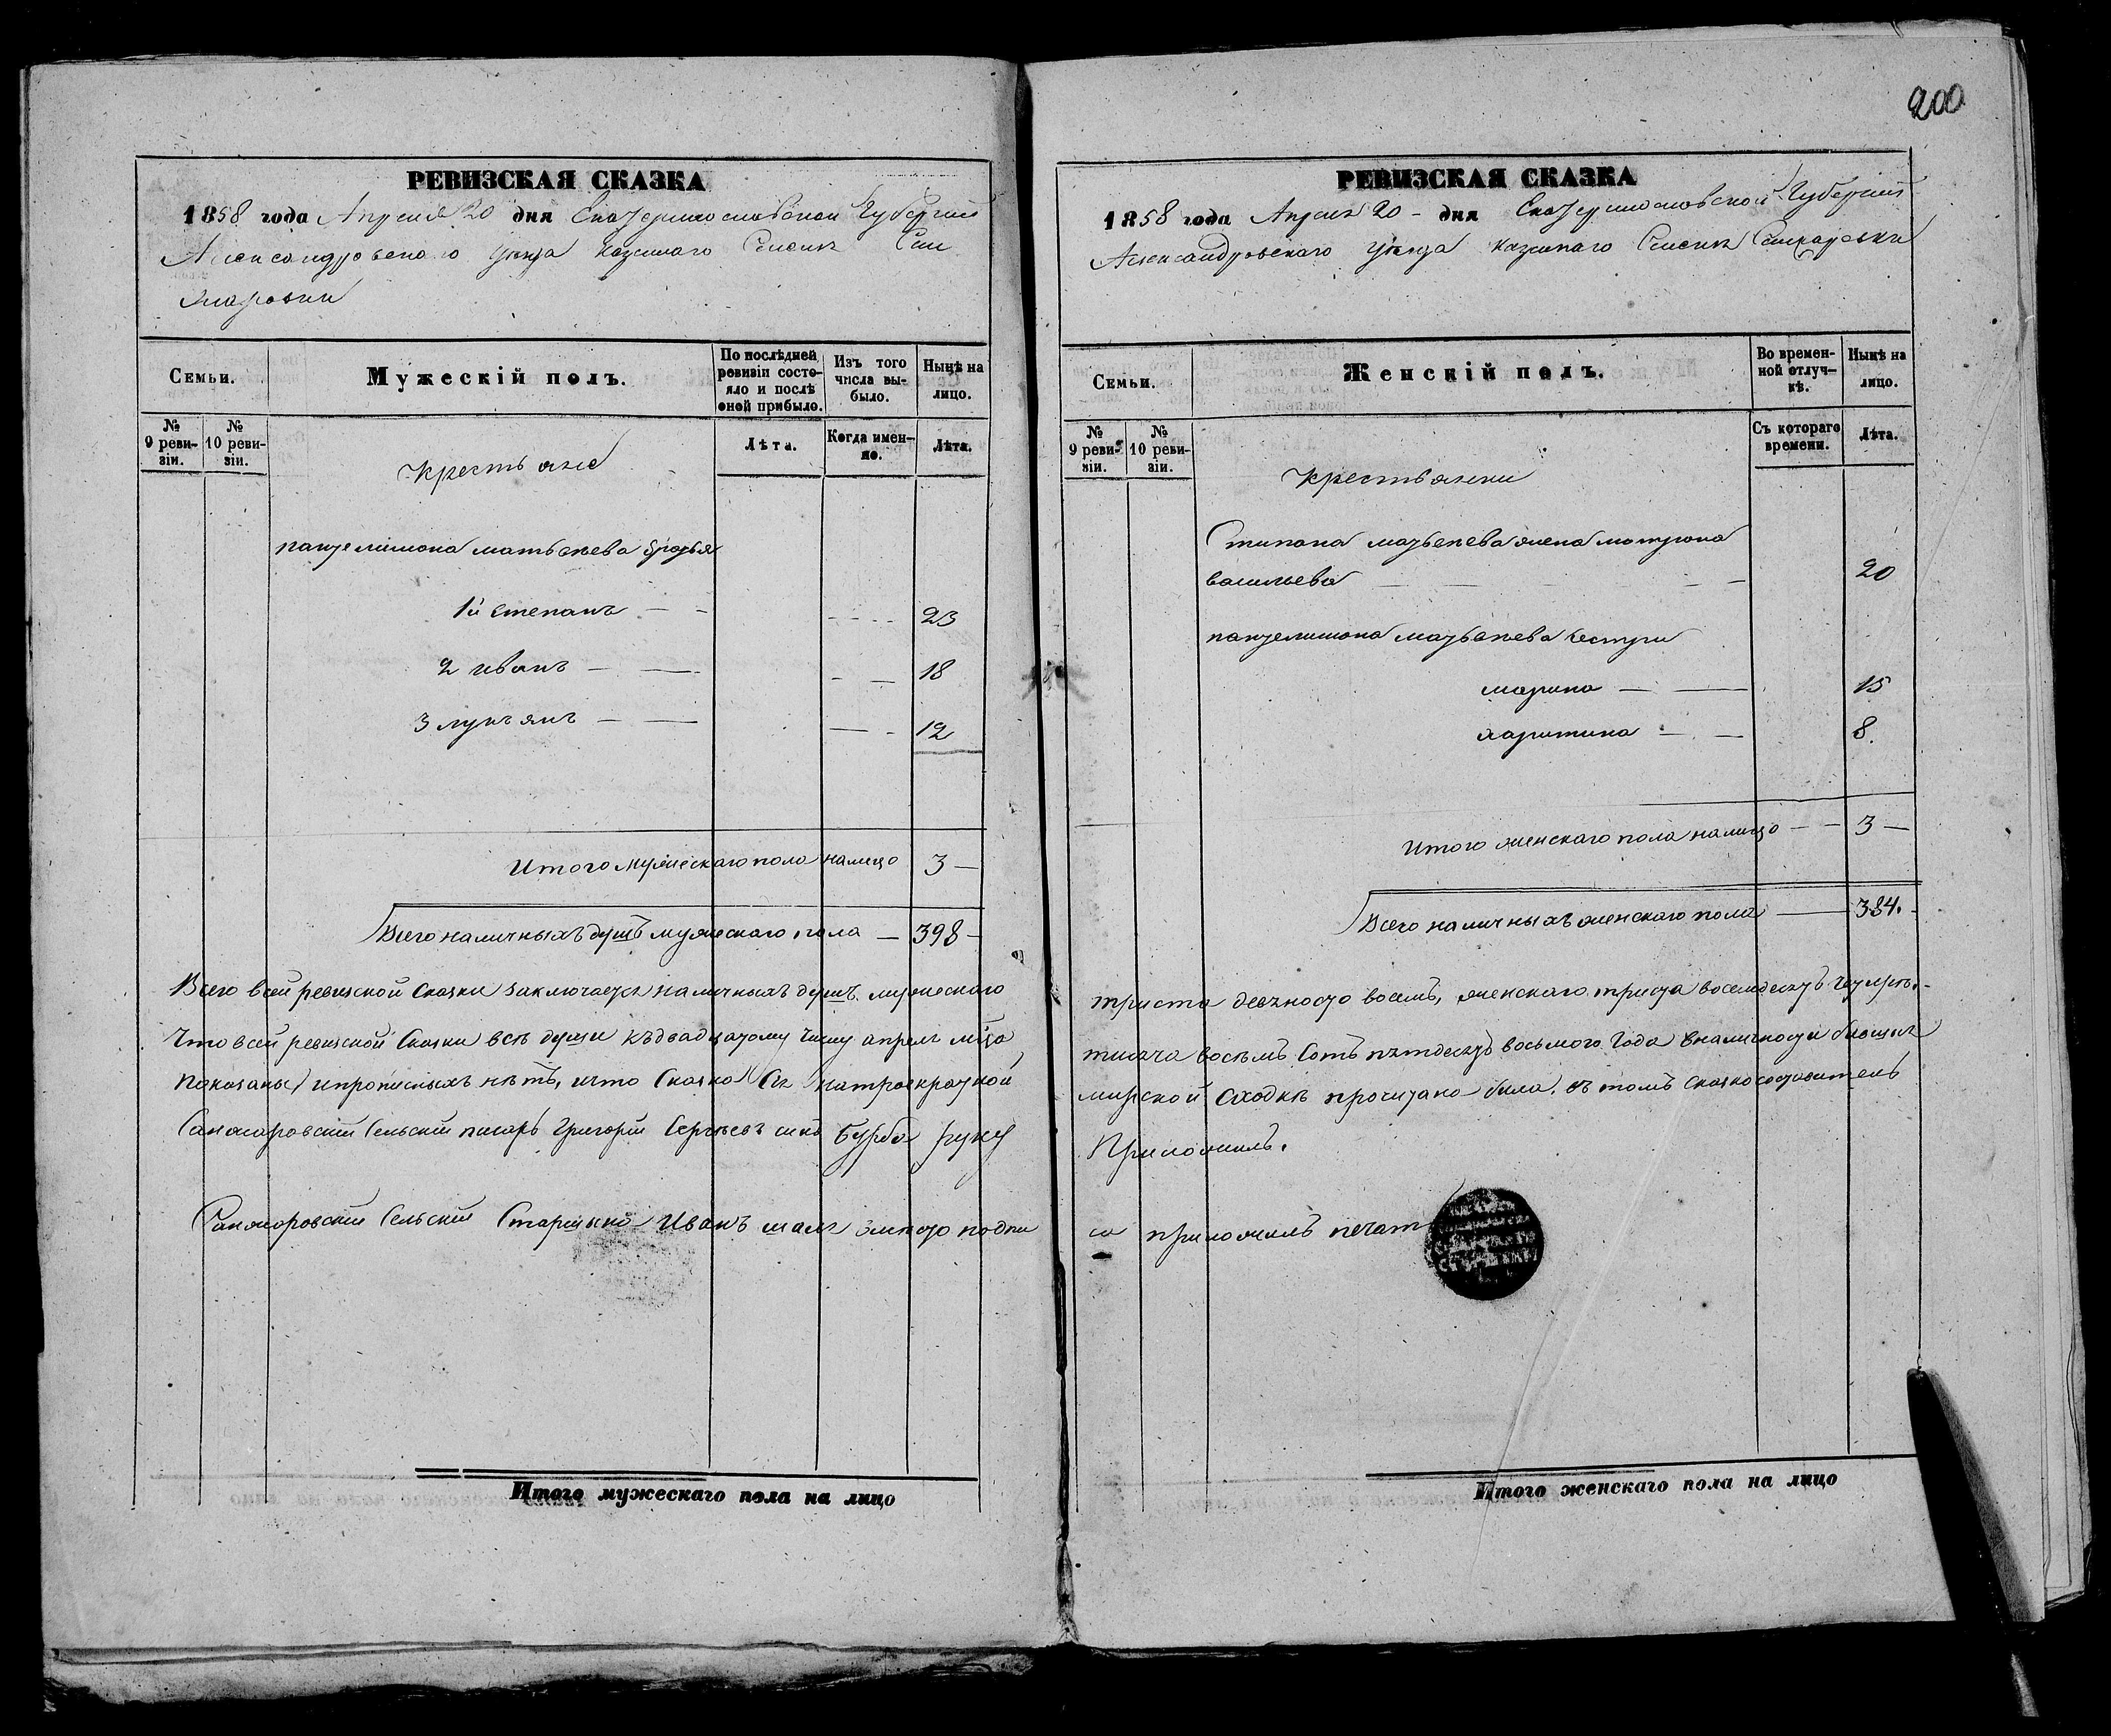 200
РЕВИЗСКАЯ СКАЗКА
1858 года Апреля 20 дня Екатеринославской Губернии
Александровского уѣзда казеннаго Селенія Сан
жаровки
Семьи.
Мужескій полъ.
По послѣдней ревизіи состояло и послѣ оной прибыло.
Изъ того числа выбыло.
Нынѣ на лицо.
№ 9 ревизіи.
№ 10 ревизіи.
Лѣта.
Когда именно.
Лѣта.
Крестьяне
пантелимона матвѣева братья
1й степанъ 23
2 иванъ 18
3 лукъянъ 12
Итого мужескаго пола налицо 3
Всего наличныхъ душъ мужескаго пола 398
Всего всей ревизской сказки заключается наличныхъ душъ мужескаго
Что всей ревизской Сказки всѣ души къдвадцатому числу апреля мѣца
показаны и прописныхъ нѣтъ, и что Сказка Ся натроекратной
Санжаровский Сельский писарь Григорий Сергѣевъ синъ Бурба руку
Санжаровский Сельский Старшина Иванъ вместо подпи
Итого мужескаго пола на лицо
РЕВИЗСКАЯ СКАЗКА
1858 года Апреля 20 дня Екатеринославской Губерніи
Александровскаго уѣзда казеннаго Селенія Санжаровки
Семьи.
Женскій полъ.
Во временной отлучкѣ.
Нынѣ на лицо.
№ 9 ревизіи.
№ 10 ревизіи.
Съ котораго времени.
Лѣта.
Крестьянки
Стипана матвѣева жена матрона
васильева 20
пантелимона матвѣева сестри
марина 15
харитина 8.
Итого женскаго пола налицо 3
Всего наличныхъ женскаго пола 384.
триста девяносто восемъ, женскаго триста восемдесятъ четыре.
тисяча восѣмъ Сотъ пятдесятъ восьмого Года вналичности бившия
мирской Сходкѣ прочитано била. въ томъ сказкосоставитель
Приложилъ.
си приложилъ печать
Итого женскаго пола на лицо